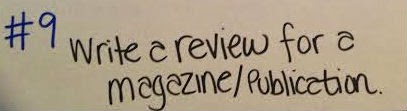 #9 Write a review for a
magazine/Publication.